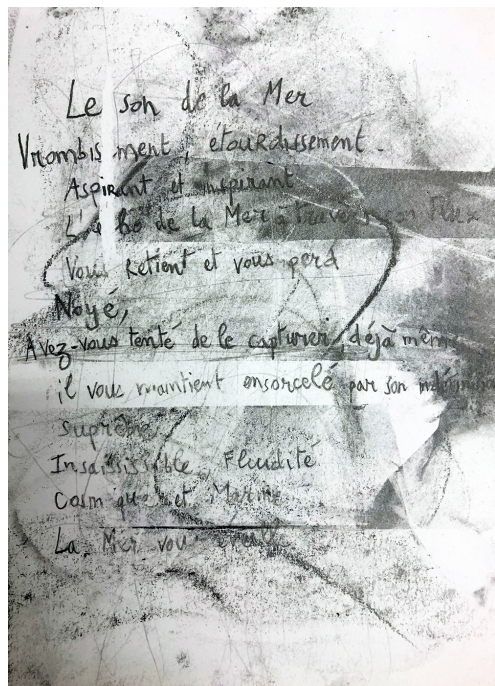 Le son de la Mer
Vrombissment, étourdissement.
Aspirant et Inspirant
de la Mer à travers son Flux
Vous retient et vous perd
Noyé,
Avez-vous tenté de le capturer, déjà même
il vous maintient ensorcelé par son
suprême
Insaisissable Fluidité
Cosmique et Marine
La Mer vous